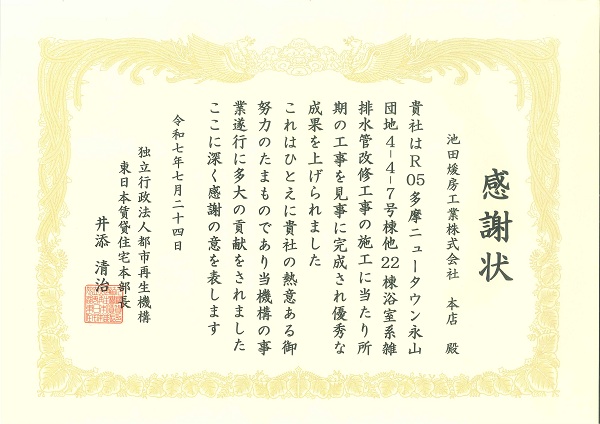 感謝状
池田煖房工業株式会社 本店 殿
貴社はR05多摩ニュータウン永山
団地4-4-7号棟他22棟浴室系雑
排水管改修工事の施工に当たり所
期の工事を見事に完成され優秀な
成果を上げられました
これはひとえに貴社の熱意ある御
努力のたまものであり当機構の事
業遂行に多大の貢献をされました
ここに深く感謝の意を表します
令和七年七月二十四日
独立行政法人都市再生機構
東日本賃貸住宅本部長
井添清治